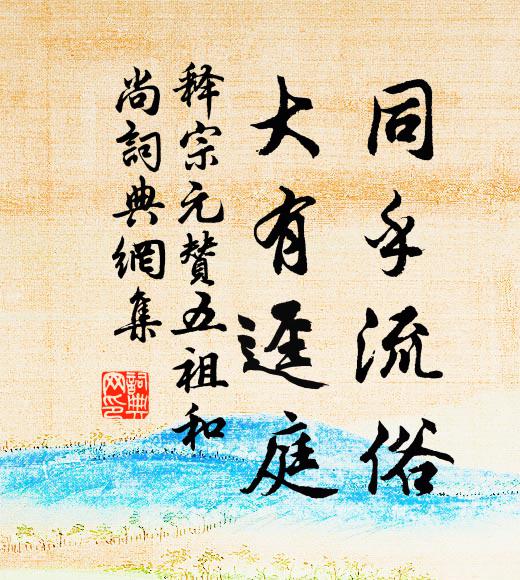 同乎流俗
大有迳庭
释宗元赞五祖和
尚詞典網集
詞典
网印